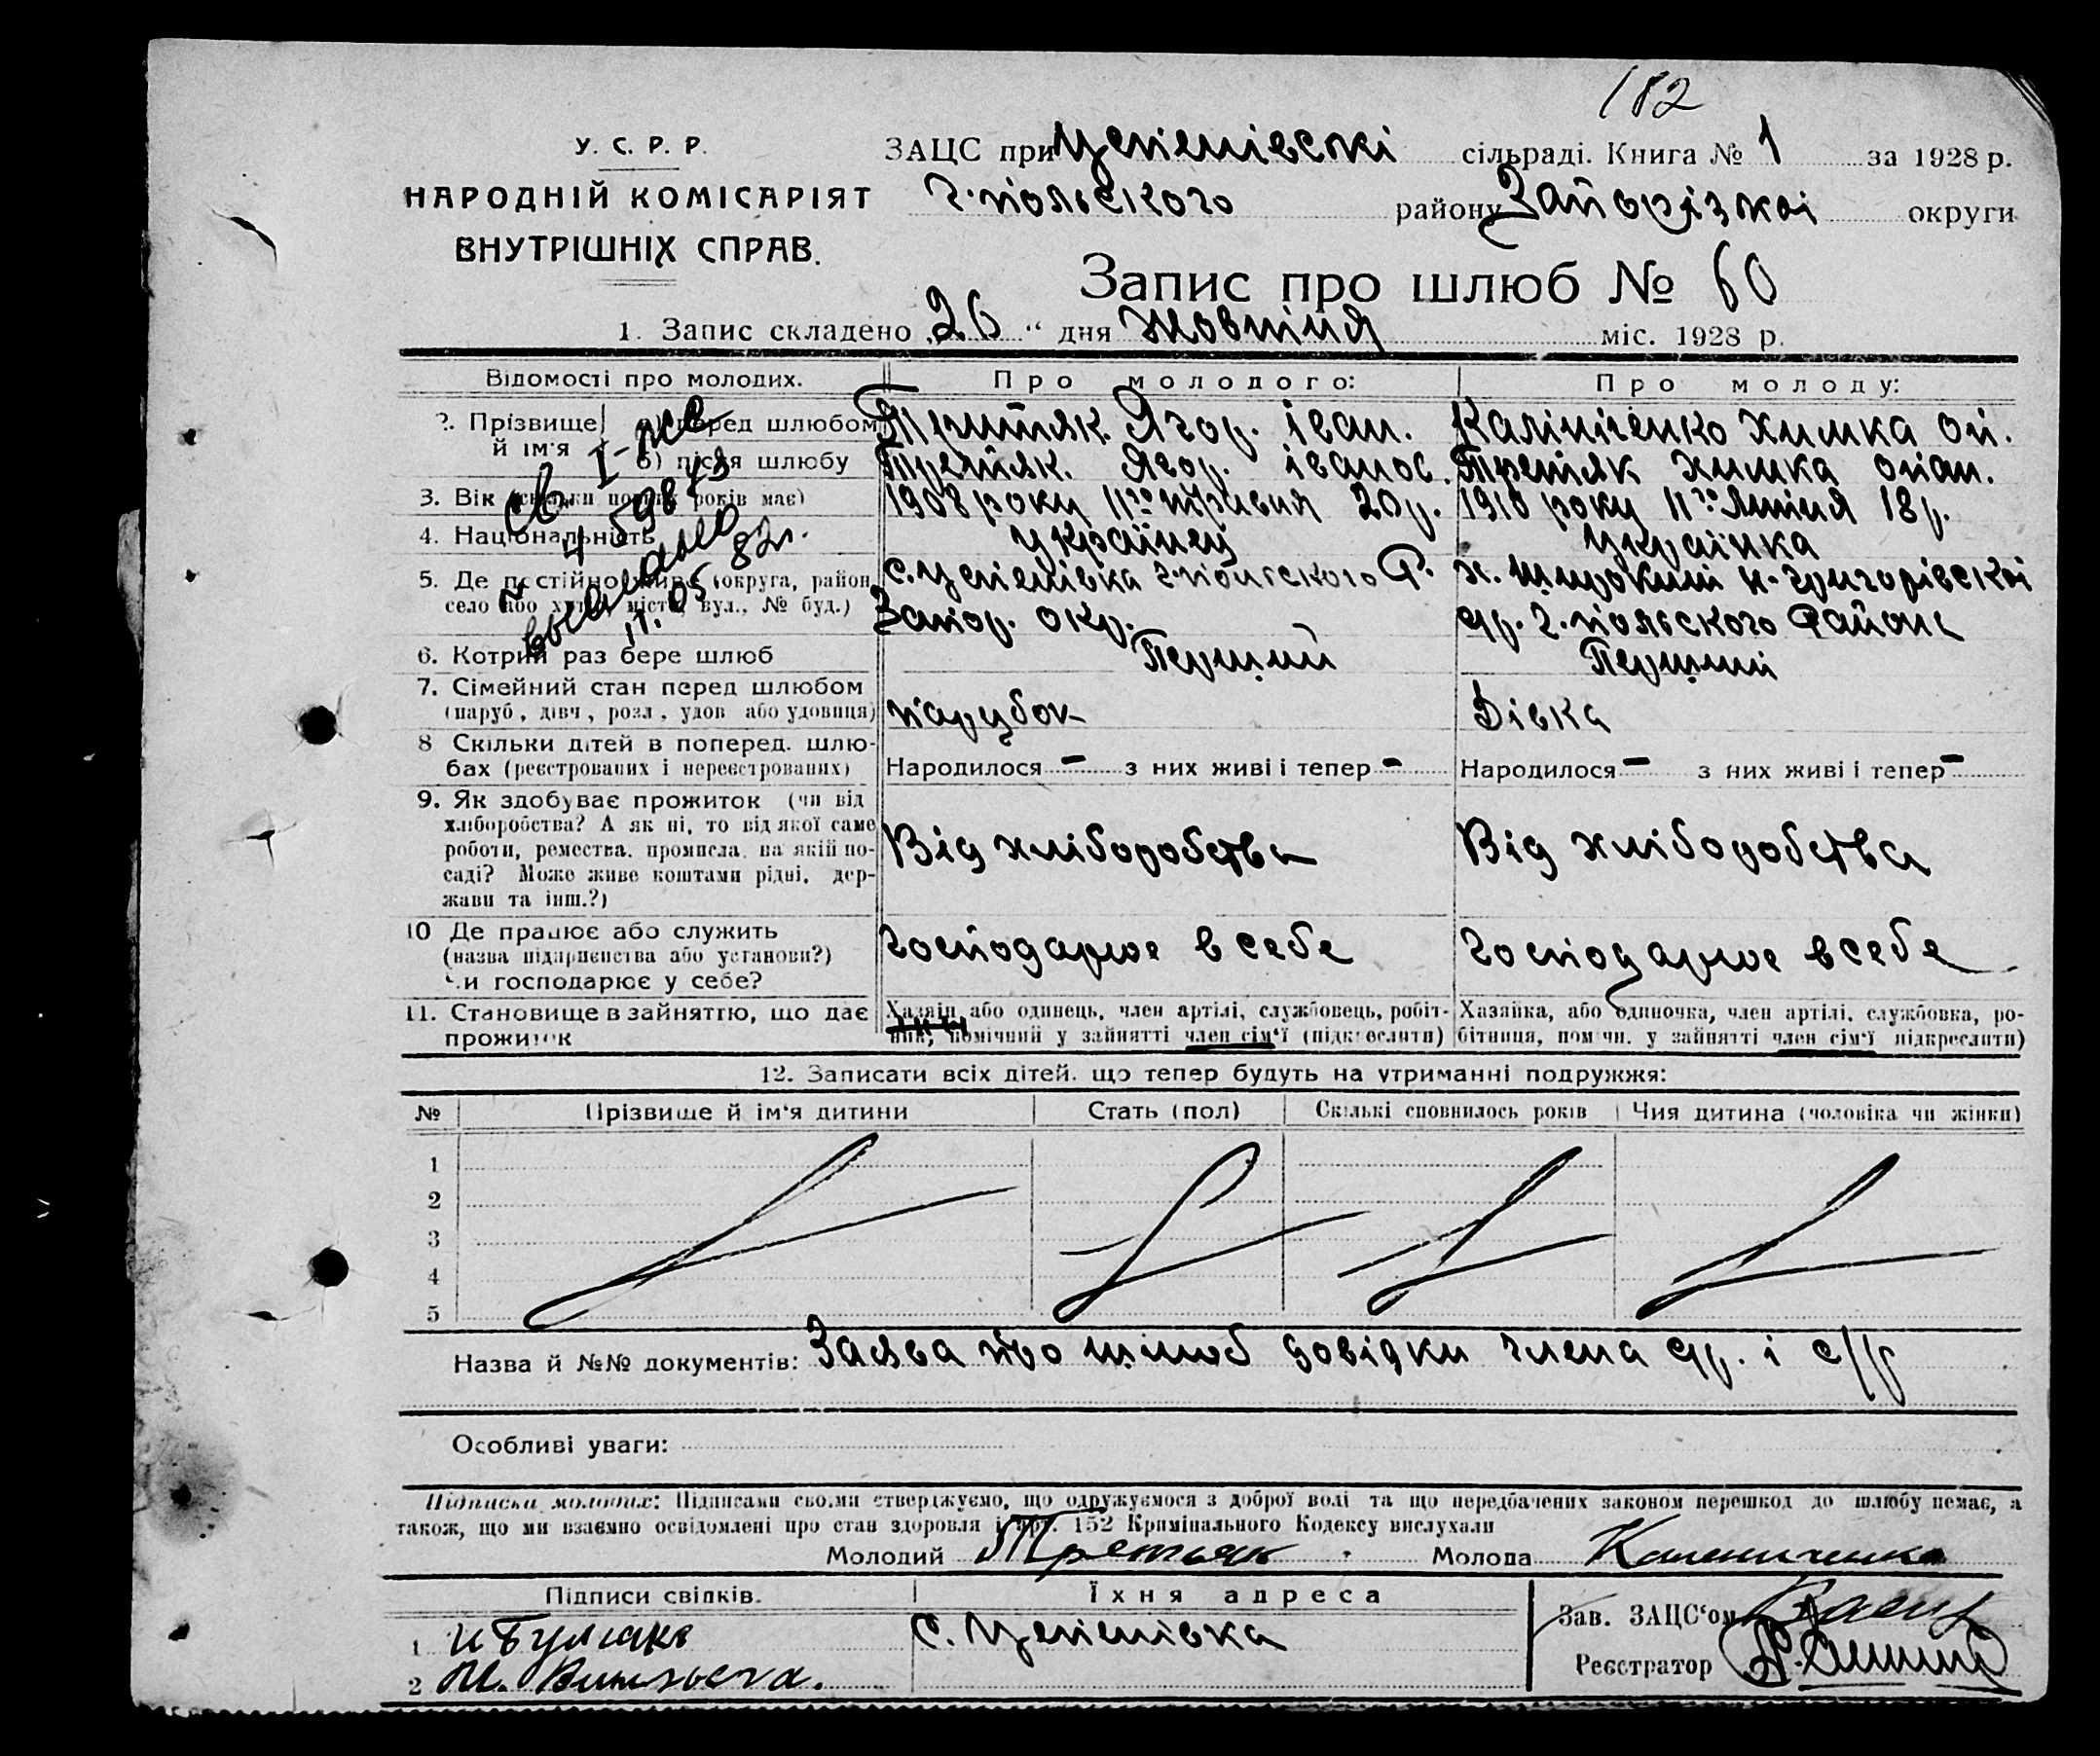 182
У. С. Р. Р.
НАРОДНІЙ КОМІСАРІЯТ
ВНУТРІШНІХ СПРАВ.
ЗАЦС при сільраді. Книга № 1 за 1928 р.
г.польського району Запорізкої округи
Запис про шлюб № 60
1. Запис складено „26“ дня жовтня міс. 1928 р.
Відомості про молодих. Про молодого: Про молоду:
2. Прізвище й ім'я а) перед шлюбом Третяк Ягор. іван. Калініченко Химка
б) після шлюбу Третяк. Ягор. іванов. Третяк химка
3. Вік (скільки повних років має) 1908 року 11го травня 20 р. 1910 року 11го 18 р.
4. Національність українец українка
5. Де постійно живе (округа, район, село або хутір, місто, вул., № буд.) с. г.польского Р. Запор. окр. х. н-григорівскої г.польского Району
I-ЖС
598473
выдано
11.05 82г.
6. Котрий раз бере шлюб Перший Перший
7. Сімейний стан перед шлюбом
(паруб., дівч., розл., удов. або удовиця) парубок Дівка
8 Скільки дітей в поперед. шлю-
бах (реєстрованих і нереєстрованих) Народилося – з них живі і тепер – Народилося – з них живі і тепер –
9. Як здобуває прожиток (чи від
хліборобства? А як ні, то від якої саме
роботи, ремества, промисла, на якій по-
саді? Може живе коштами рідні, дер-
жави та інш.?) Від хліборобства Від хліборобства
10 Де працює або служить
(назва підприємства або установи?)
Чи господарює у себе? Господарює в себе Господарює в себе
11. Становище в зайняттю, що дає
прожиток
Хазяїн або одинець, член артілі, службовець, робіт-
ник, помічний у зайнятті член сім'ї (підкреслити)
Хазяйка, або одиночка, член артілі, службовка, ро-
бітниця, пом чн. у зайнятті член сім'ї підкреслити)
12. Записати всіх дітей, що тепер будуть на утриманні подружжя:
№ Прізвище й ім'я дитини Стать (пол) Скількі сповнилось років Чия дитина (чоловіка чи жінки)
1
2
3
4
5
Назва й №№ документів: Заява про шлюб довідки члена і с/р
Особливі уваги:
Підписи молодих: Підписами своїми стверджуємо, що одружуємося з доброї волі та що передбачених законом перешкод до шлюбу немає, а
також, що ми взаємно освідомлені про стан здоровля і арт. 152 Кримінального Кодексу вислухали
Молодий Третьяк Молода Калениченко
Підписи свідків. Їхня адреса
Зав. ЗАЦС'ом
1 с.
Реєстратор
2